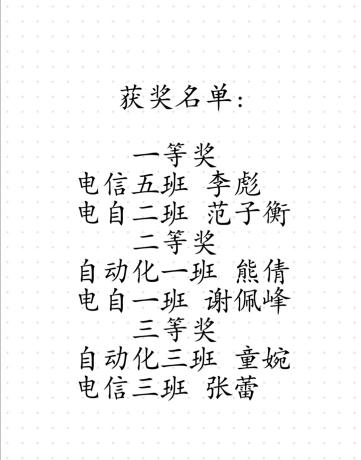 获奖名单:
一等奖
电信五班 李彪
电自二班 范子衡
二等奖
自动化一班 熊倩
电自一班 谢佩峰
三等奖
自动化三班 童婉
电信三班 张蕾